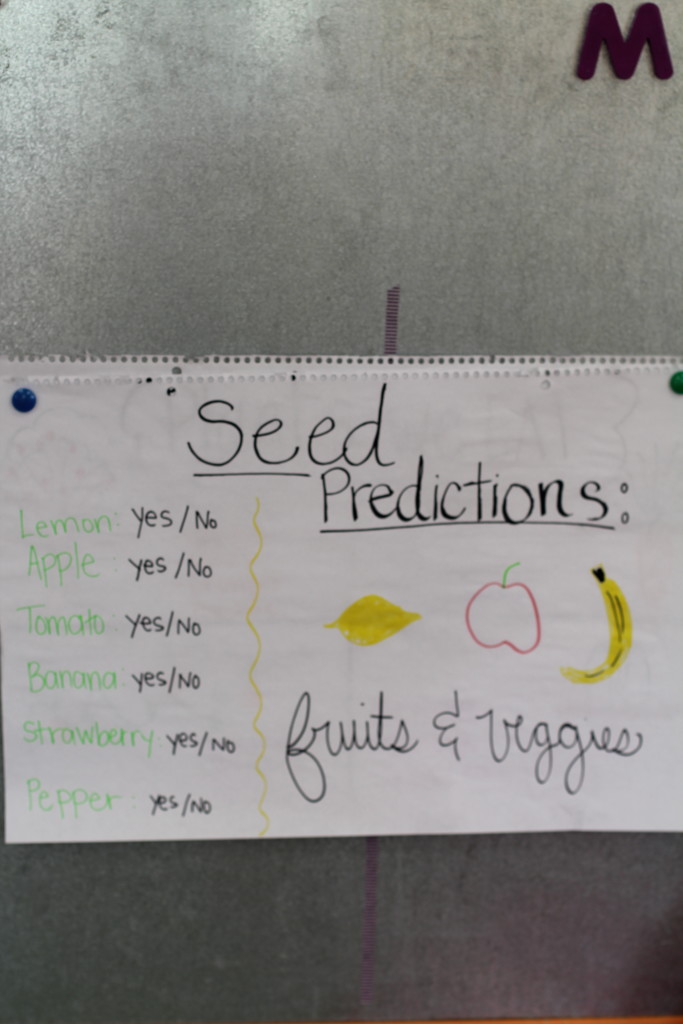 M
Seed
Predictions:
Lemon: yes/No
Apple yes/No
Tomato: yes/No
Banana: yes/No
Strawberry yes/No
Pepper: yes/No
fruits & veggies